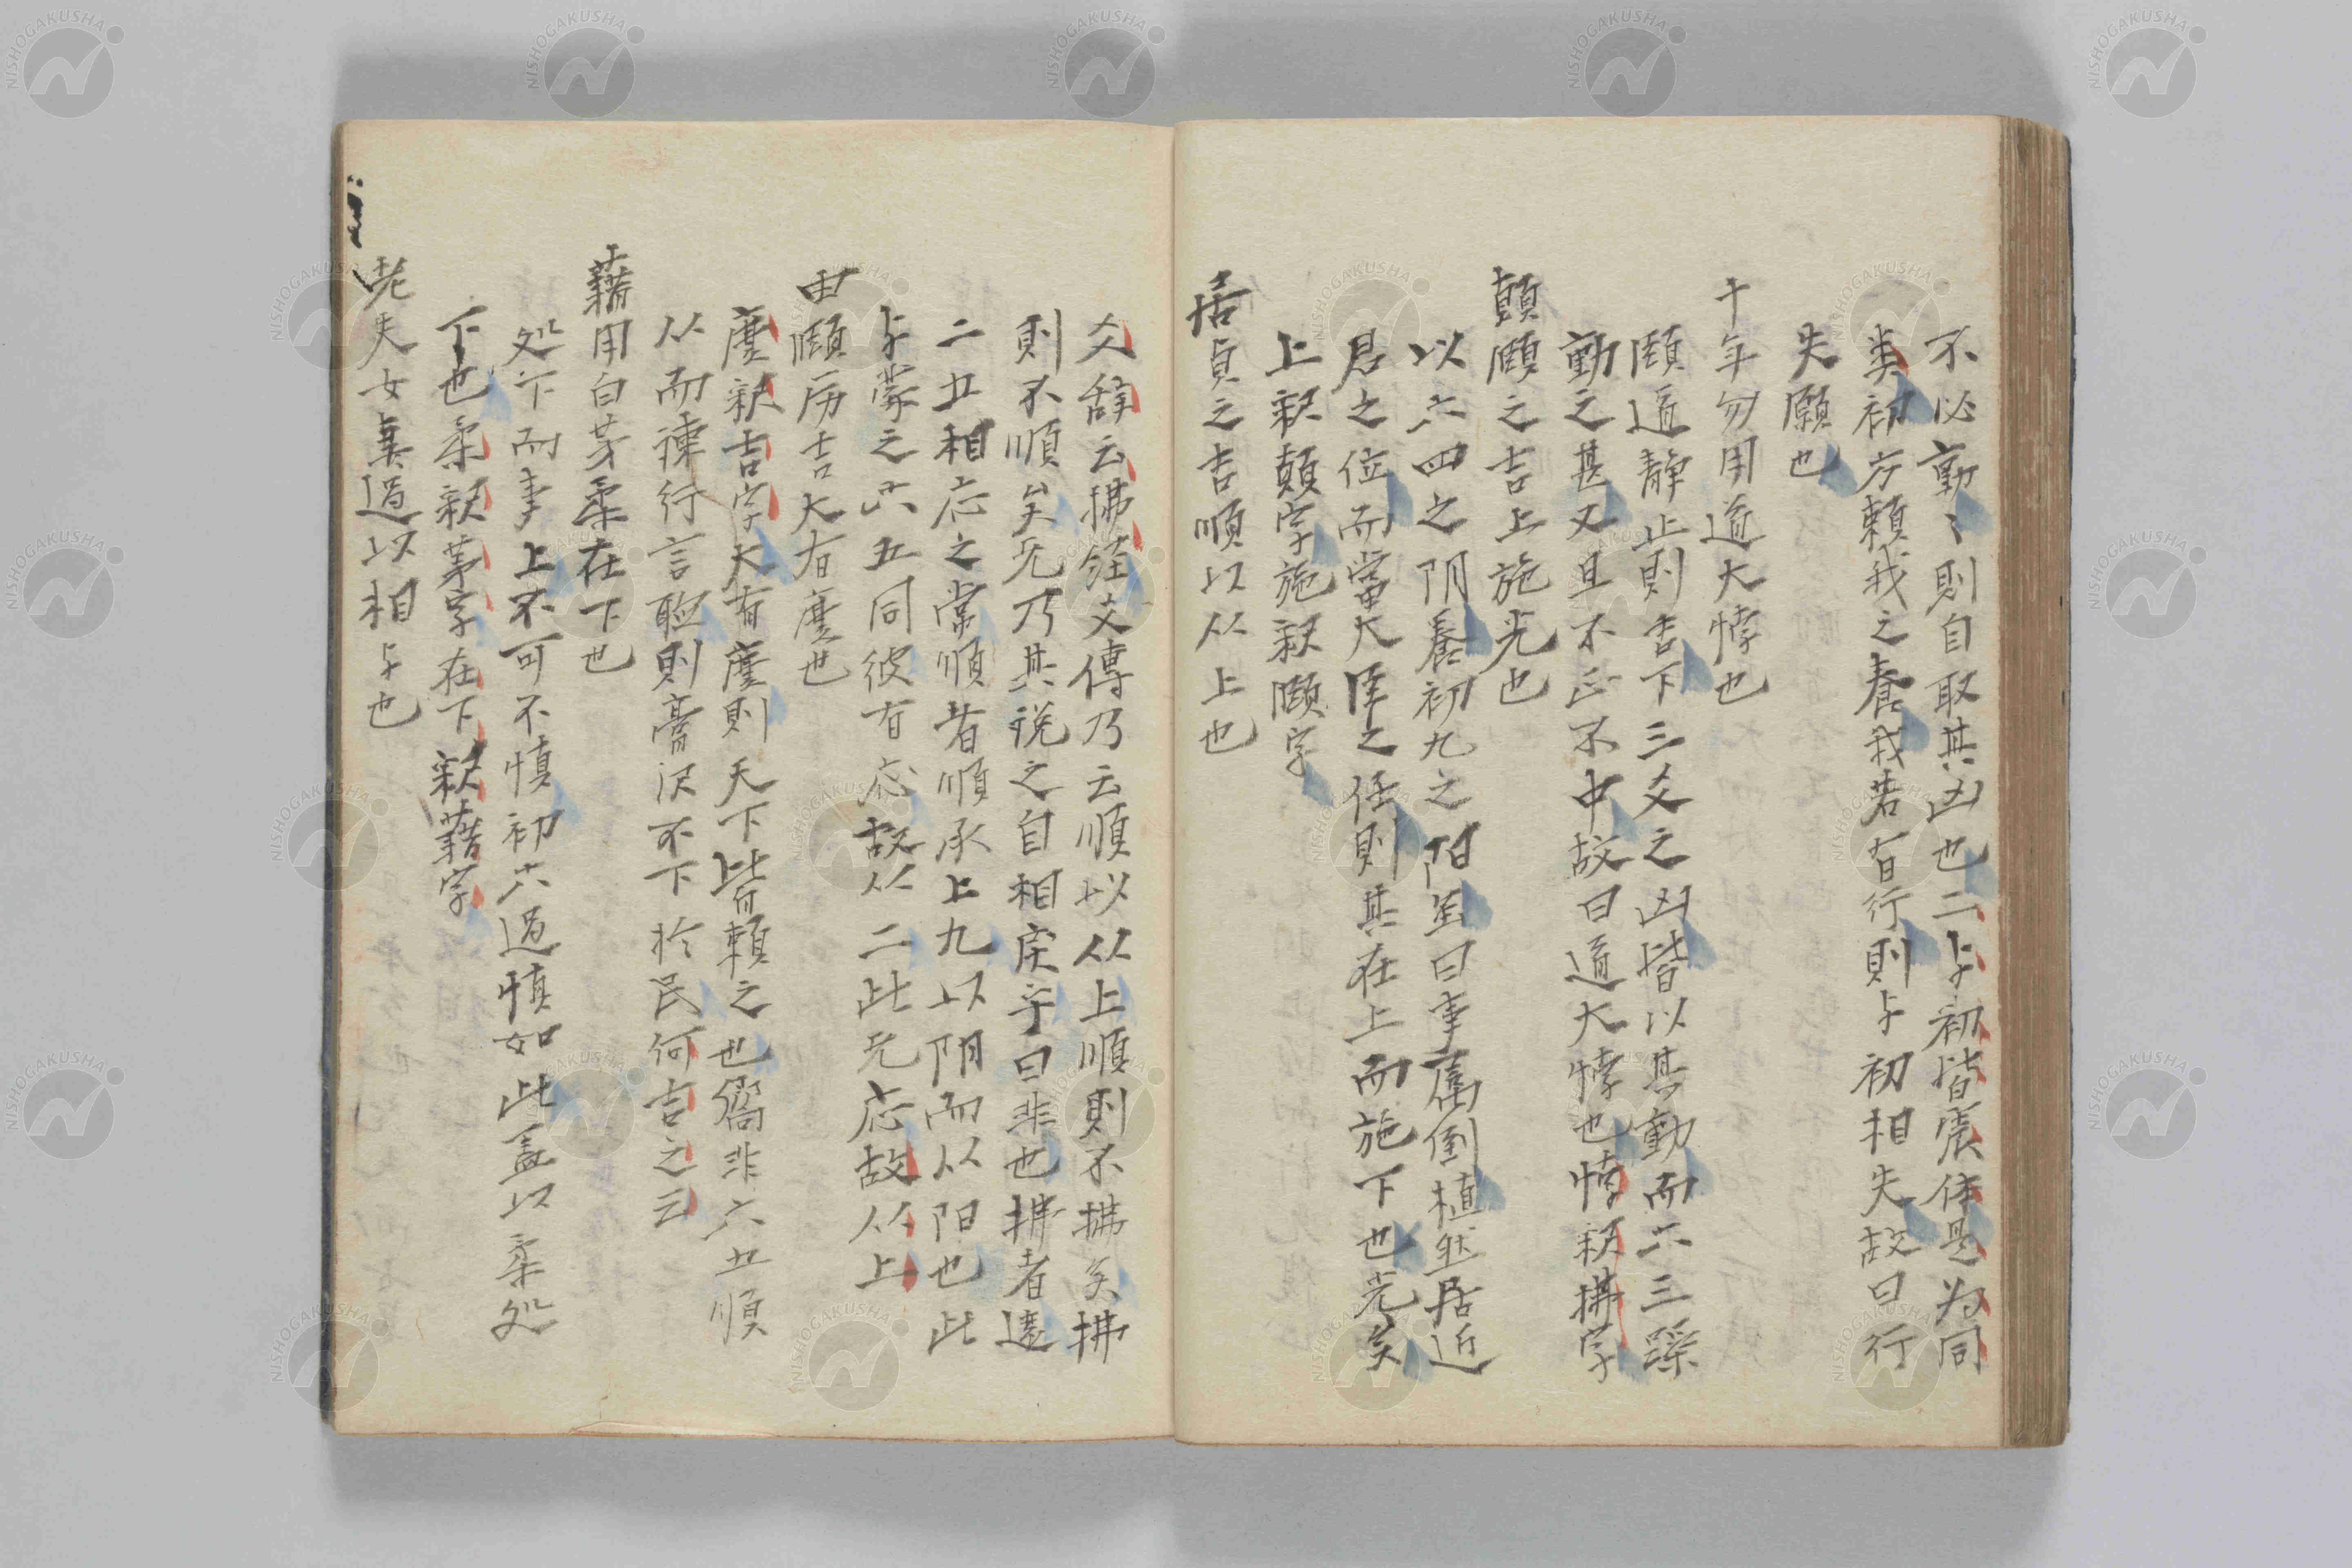 不必動〻則自取其凶也二与初皆震体是为同
类初方頼我之養我若有行則与初相失故曰行
失願也
十年勿用道大悖也
頤道静止則吉下三爻之凶皆以其動而六三躁
動之甚又且不正不中故曰道大悖也悖釈拂字
顛頤之吉上施光也
以六四之阴養初九之阳虽曰事属倒植然居近
君之位而當大臣之任則其在上而施下也光矣
上釈顛字施釈頤字
居貞之吉順以从上也
爻辞云拂経爻傳乃云順以从上順則不拂矣拂
則不順矣无乃其説之自相戻乎曰非也拂者違
二五相応之常順者順承上九以阴而从阳也此
与蒙之六五同彼有応故从二此无応故从上
由頤厉吉大有慶也
慶釈吉字大有慶則天下皆頼之也徜非六五順
从而諫行言聴則膏沢不下於民何吉之云
藉用白茅柔在下也
处下而事上不可不慎初六過慎如此盖以柔处
下也柔釈茅字在下釈藉字
老夫女妻過以相与也
NISHOGAKUSHA